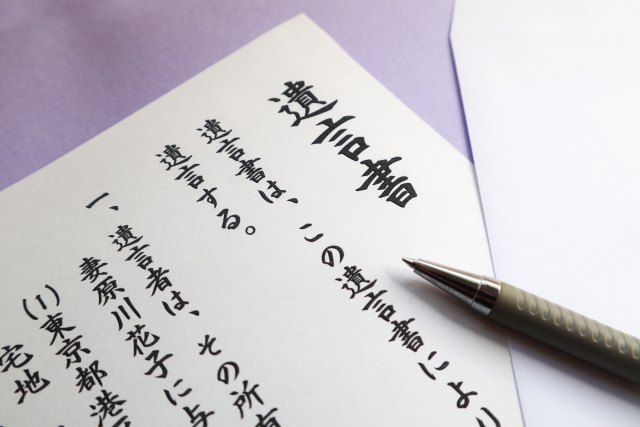 遺言書
遺言書は、この遺言書により
遺言する。
一、遺言者は、その所有
妻原川花子に与
(1)東京都港
宅地